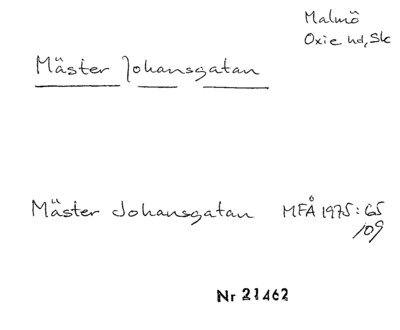 Malmö
Oxie hd, Sk
Mäster Johansgatan
Mäster Johansgatan MFÅ 1975:65
/109
Nr 21462